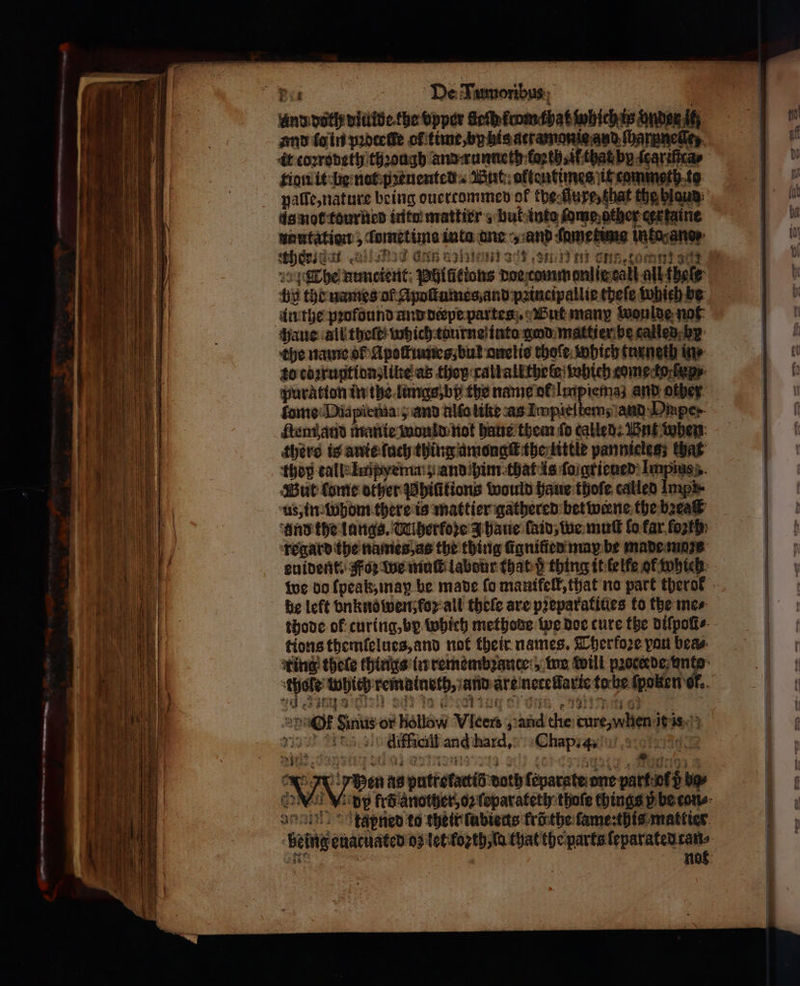 De Tumoribus,
and doth diuide the vpper flesh from that which is vnder it,
and so in processe of time, by his acramonie and sharpnesse,
it corrodeth through and runneth forth, if that by scarifica-
tion it be not preuented. But oftentimes it commeth to
passe, nature being ouercommed of the fluxe, that the bloud
is not tourned into mattier, but into some other certaine
mutation, sometime into one, and sometime into ano-
ther.
The auncient Phisitions doe commonlie call all these
by the names of Apostumes, and principallie these which be
in the profound and deepe partes. But many woulde not
haue all these which tourne into good mattier be called by
the name of Apostumes, but onelie those which turneth in-
to corruption, like as they call all these which come to sup-
puration in the lungs, by the name of Impiema, and other
some Diapiema, and also like as Impiestem, and Dmpe-
stem, and manie would not haue them so called: But when
there is anie such thing amongst the little pannicles, that
they call Impyema, and him that is so grieued Impius.
But some other Phisitions would haue those called Impi-
us, in whom there is mattier gathered betweene the breast
and the lungs. Wherfore I haue said, we must so far forth
regard the names, as the thing signified may be made more
euident. For we must labour that ẏ thing it selfe of which
we do speak, may be made so manifest, that no part therof
be left vnknowen, for all these are preparatiues to the me-
thode of curing, by which methode we doe cure the disposi-
tions themselues, and not their names. Therfore you bea-
ring these things in remembrance, we will proceede vnto
those which remaineth, and are necessarie to be spoken of.
Of Sinus or Hollow Vlcers, and the cure, when it is
difficill and hard, Chap. 4.
When as putrefactiō doth separate one part of ẏ bo-
dy frō another, or separateth those things ẏ be con-
tayned to their subiects frō the same: this mattier
being euacuated or let forth, so that the parts separated can-
not